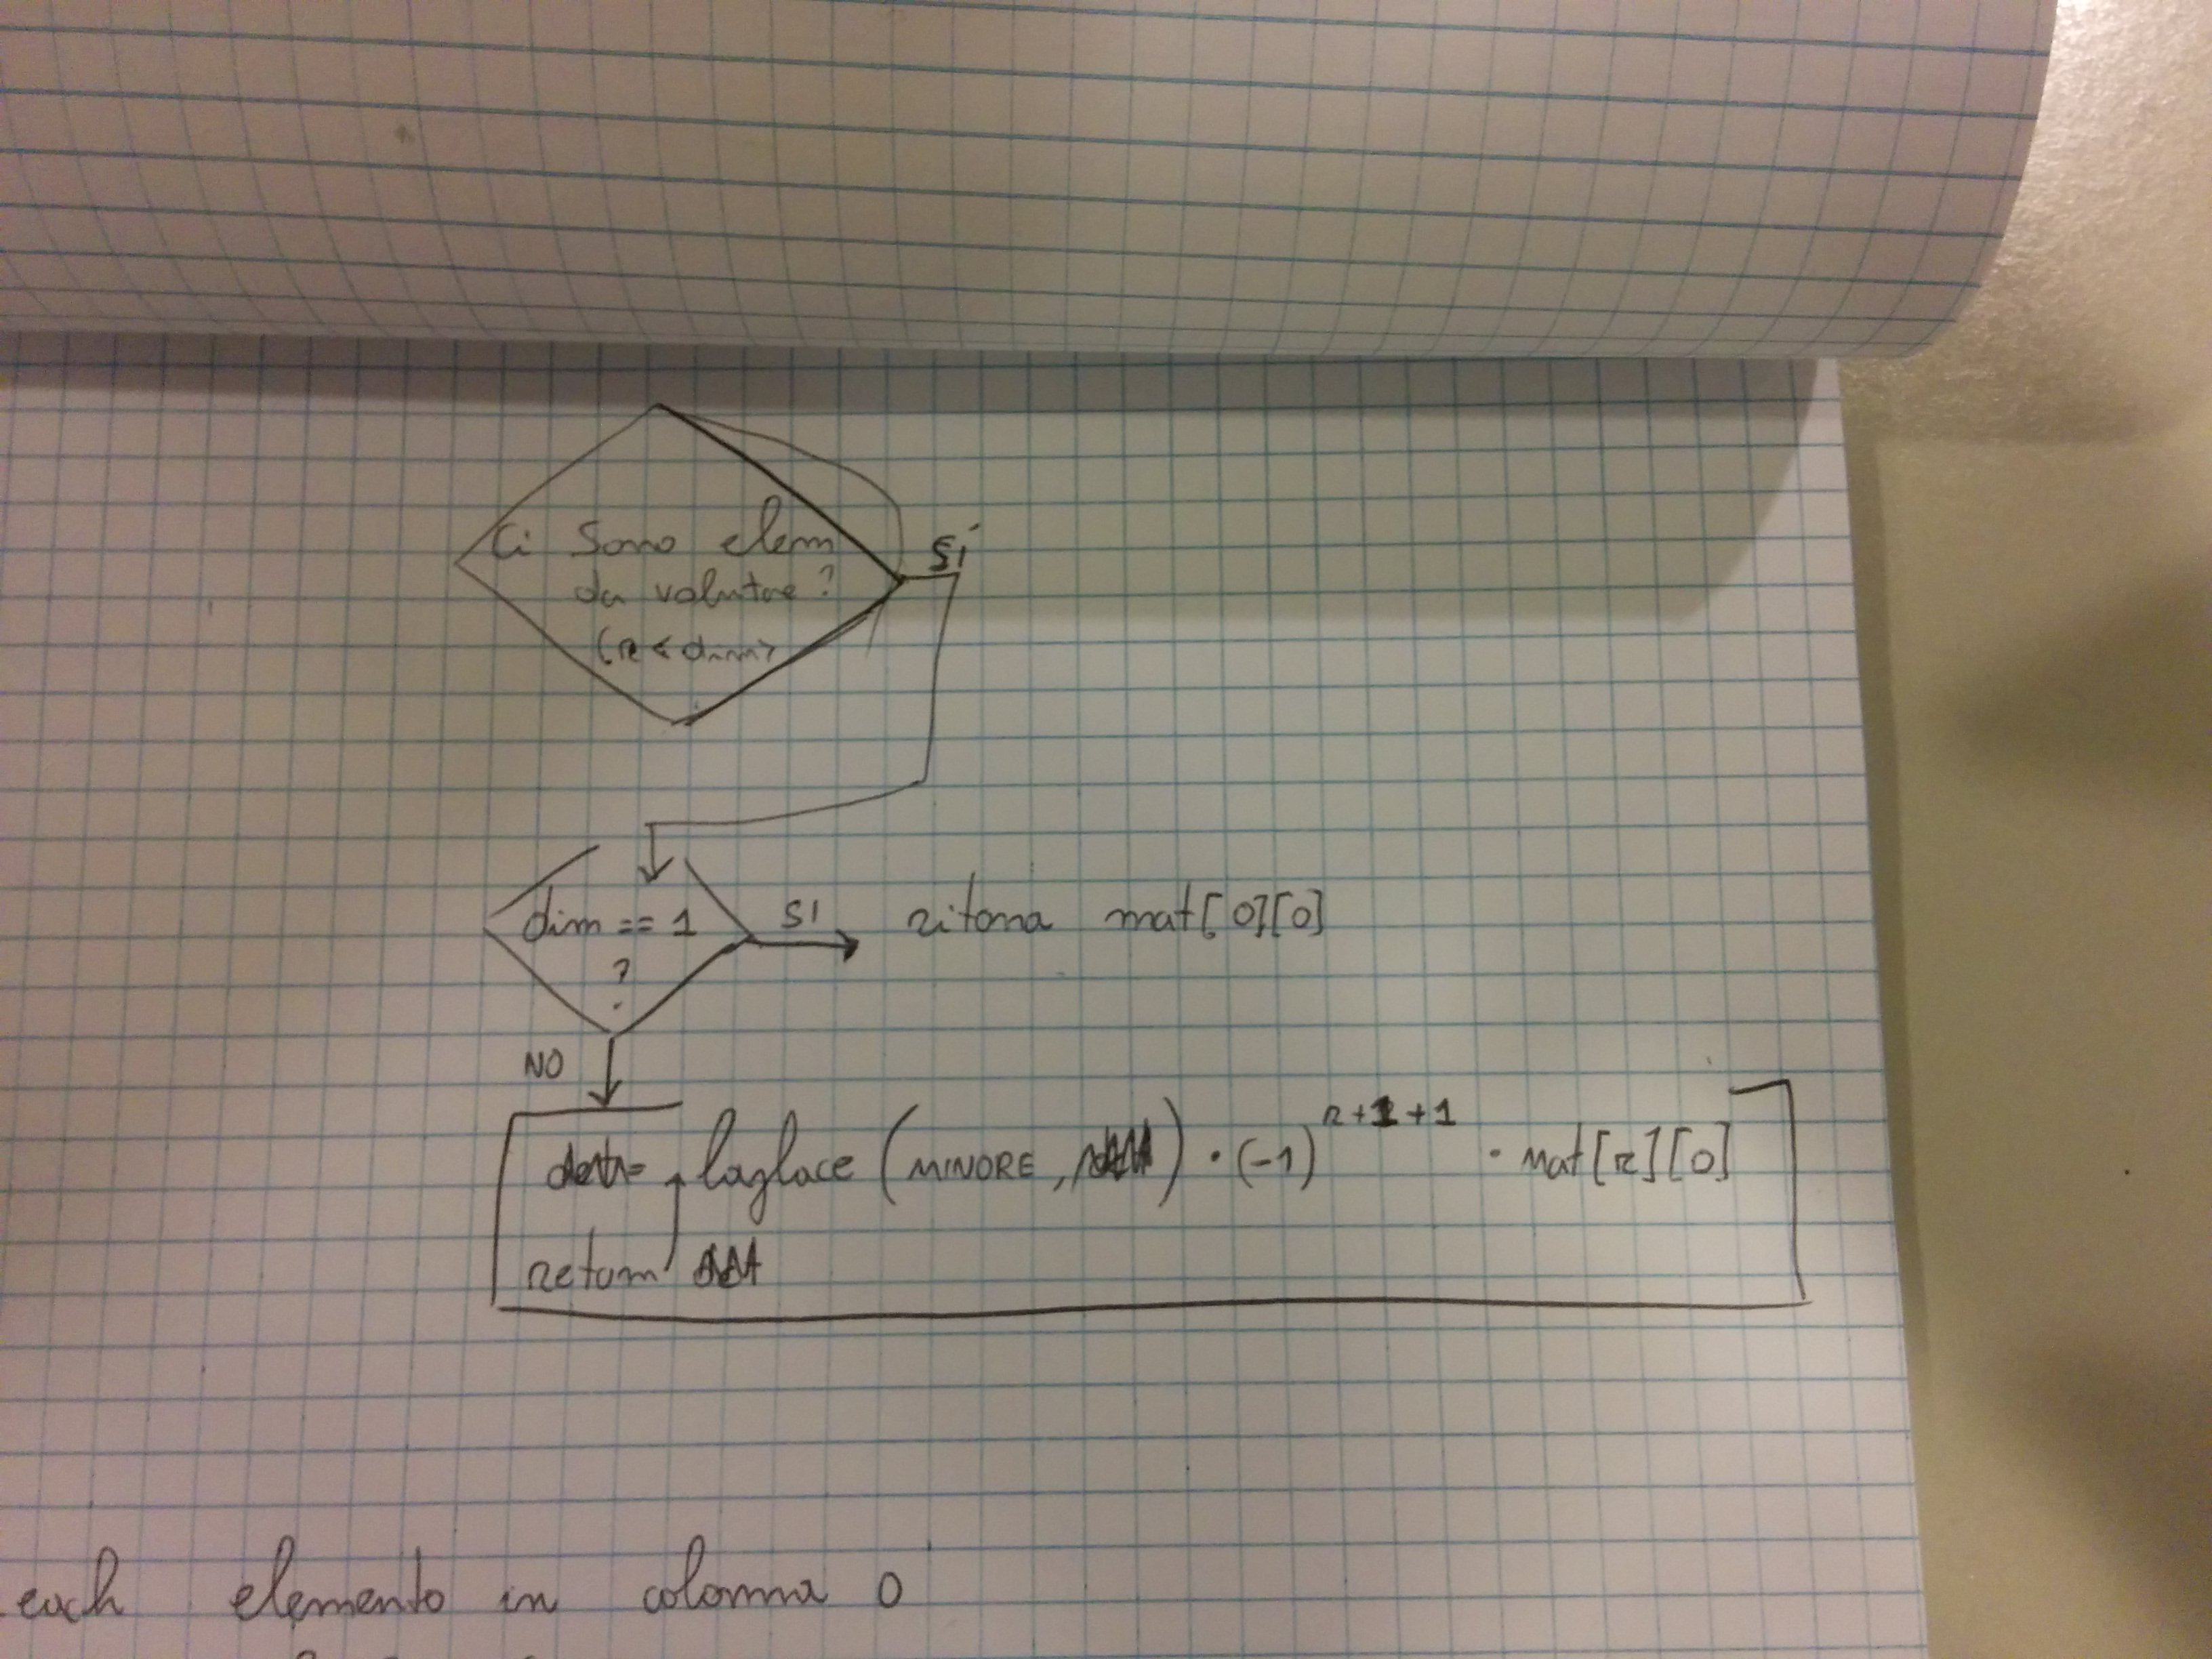 Ci sono elem
da valutare?
(r < dim)
SÍ
dim == 1
?
SI
ritorna mat[0][0]
NO
laplace (MINORE, ) · (-1)^r+1+1 · mat[r][0]
return
each elemento in colonna 0